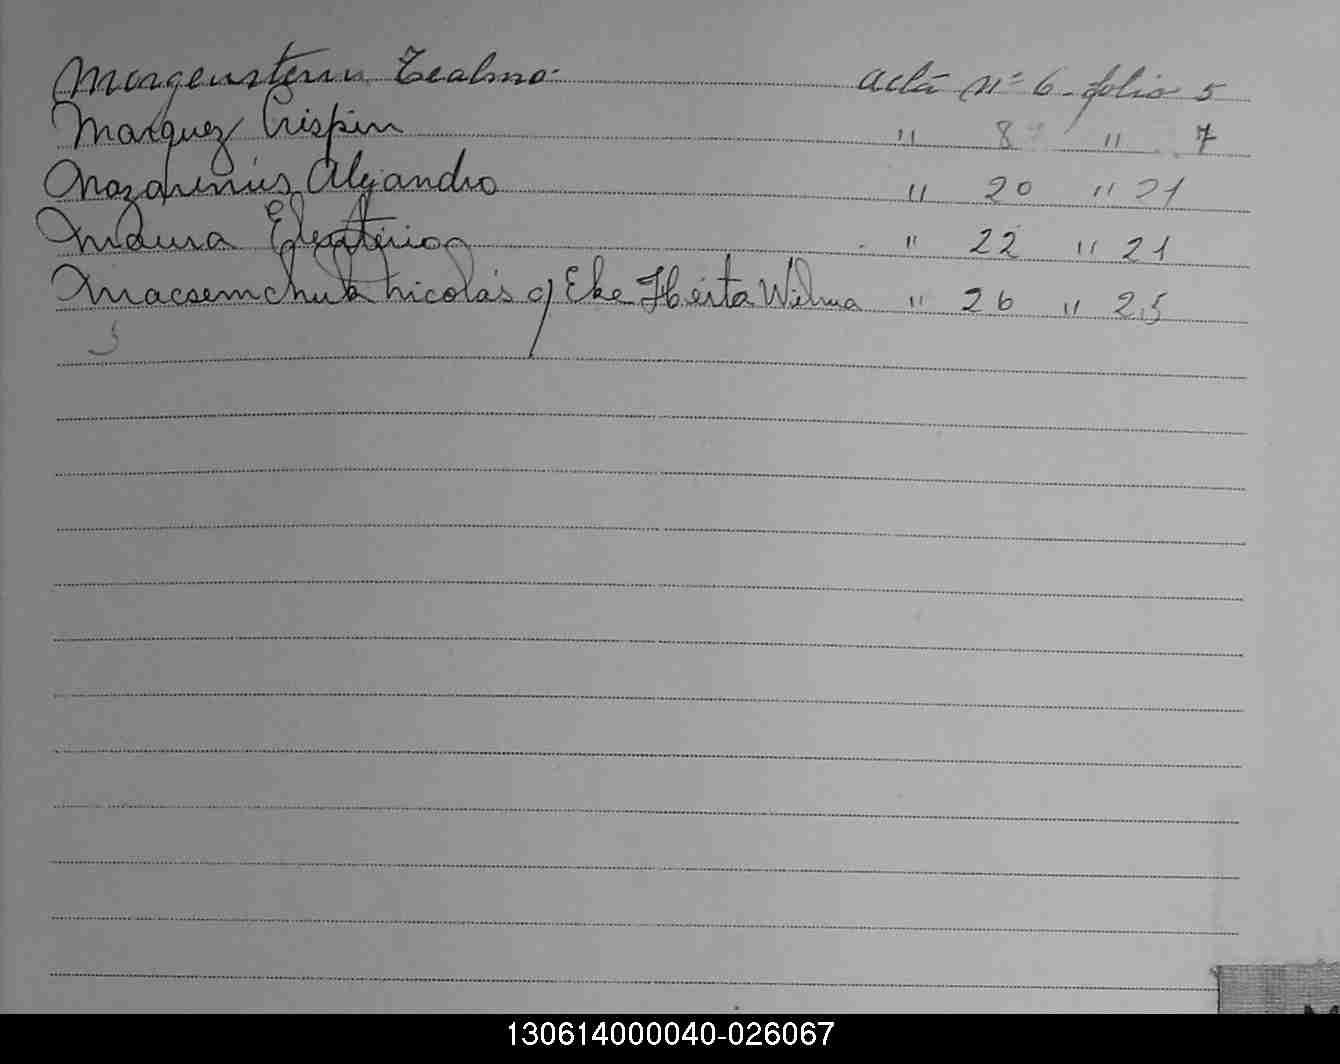 Morgenstern Tealmo. acta nº 6 - folio 5
Marquez Crispin " 8 " 7
Mazarinius Alejandro " 20 " 21
Maura Eleuterio " 22 " 21
Macsemchuk Nicolás c/ Eke Herta Wilma " 26 " 25
5
130614000040-026067